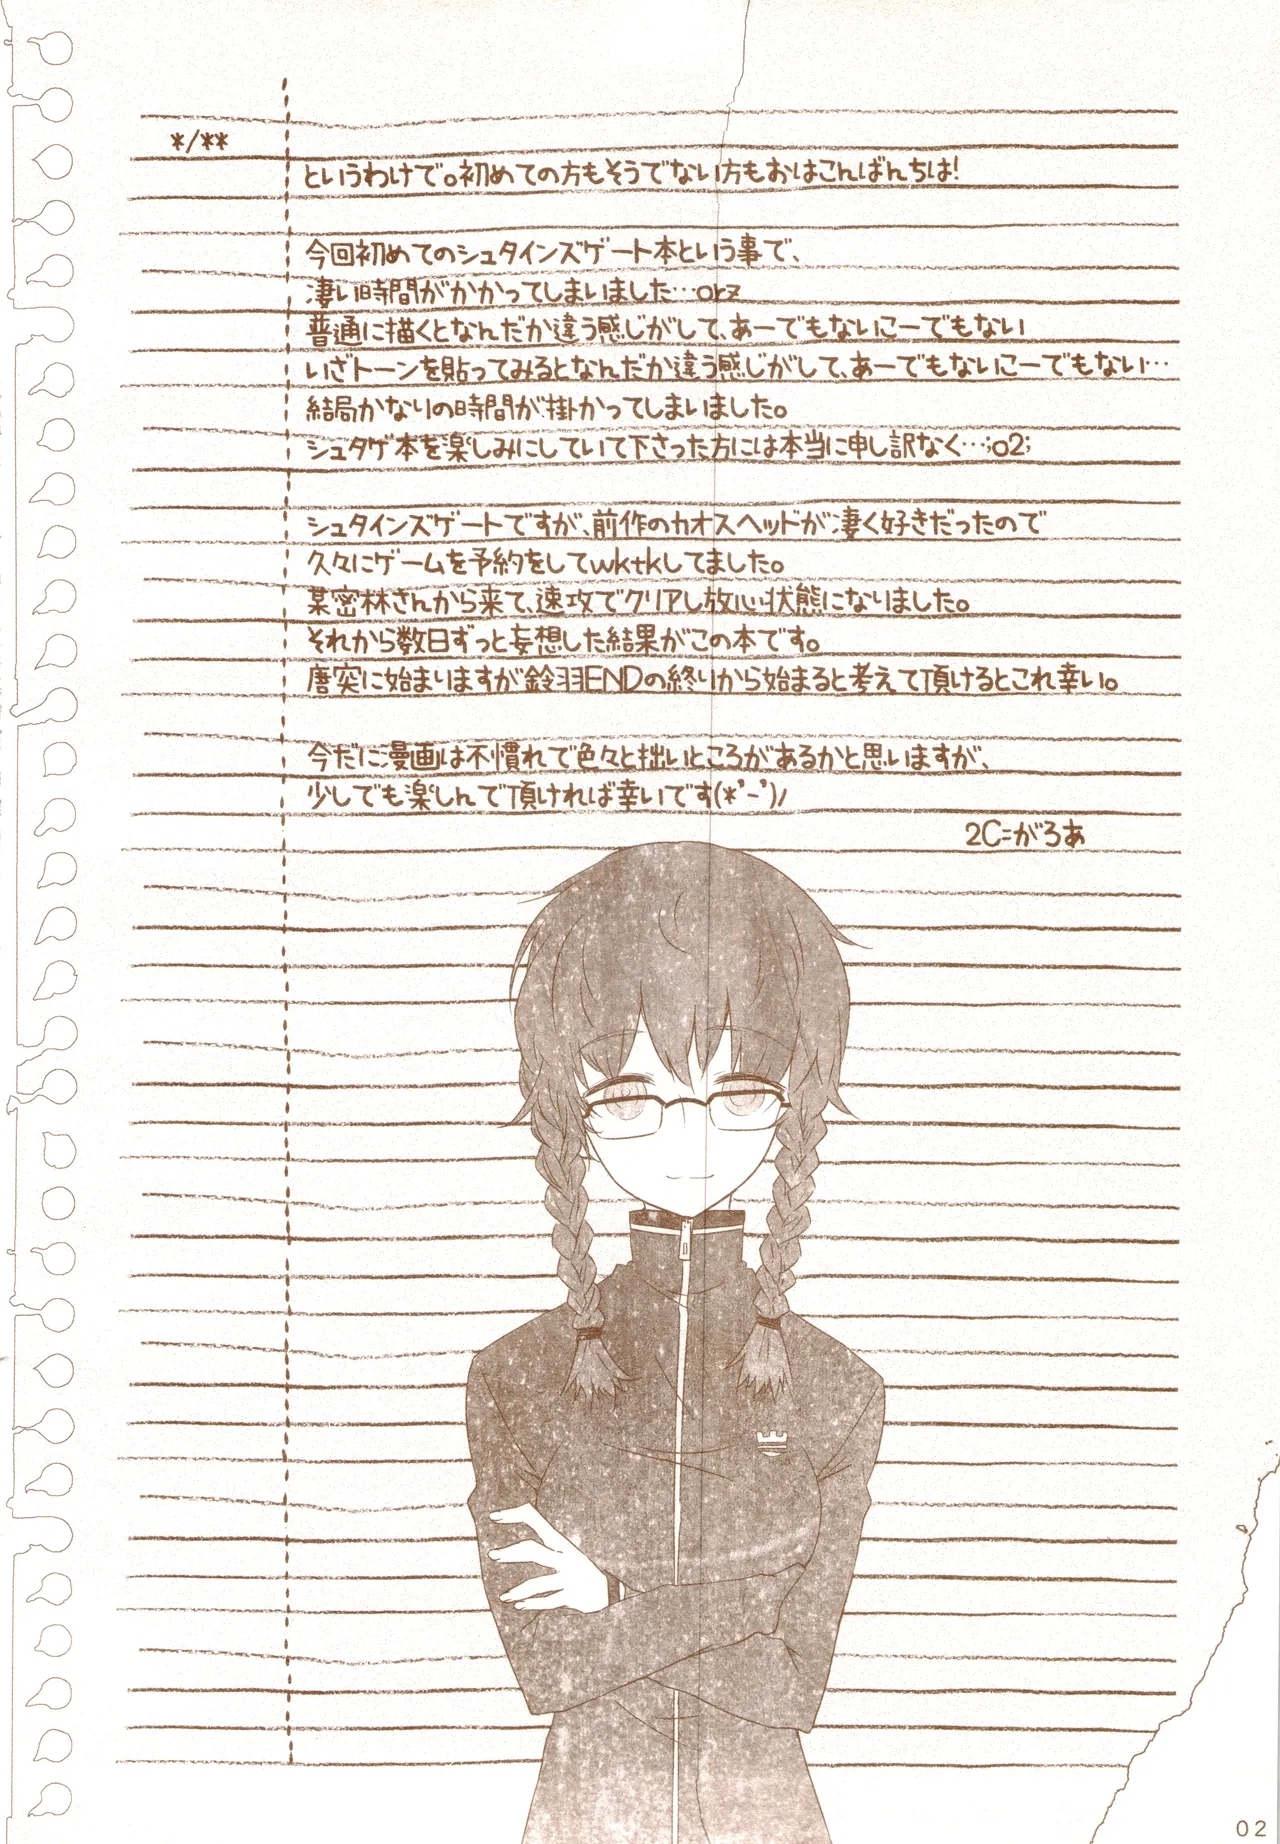 */**
というわけで。初めての方もそうでない方もおはこんばんちは!
今回初めてのシュタインズゲート本という事で、
凄い時間がかかってしまいました…orz
普通に描くとなんだか違う感じがして、あーでもないこーでもない
いざトーンを貼ってみるとなんだか違う感じがして、あーでもないこーでもない…
結局かなりの時間が掛かってしまいました。
シュタゲ本を楽しみにしていて下さった方には本当に申し訳なく…;o2;
シュタインズゲートですが、前作のカオスヘッドが凄く好きだったので
久々にゲームを予約をしてwktkしてました。
某密林さんから来て、速攻でクリアし放心状態になりました。
それから数日ずっと妄想した結果がこの本です。
唐突に始まりますが鈴羽ENDの終りから始まると考えて頂けるとこれ幸い。
今だに漫画は不慣れで色々と拙いところがあるかと思いますが、
少しでも楽しんで頂ければ幸いです(*'-')ﾉ
2C=がろあ
02